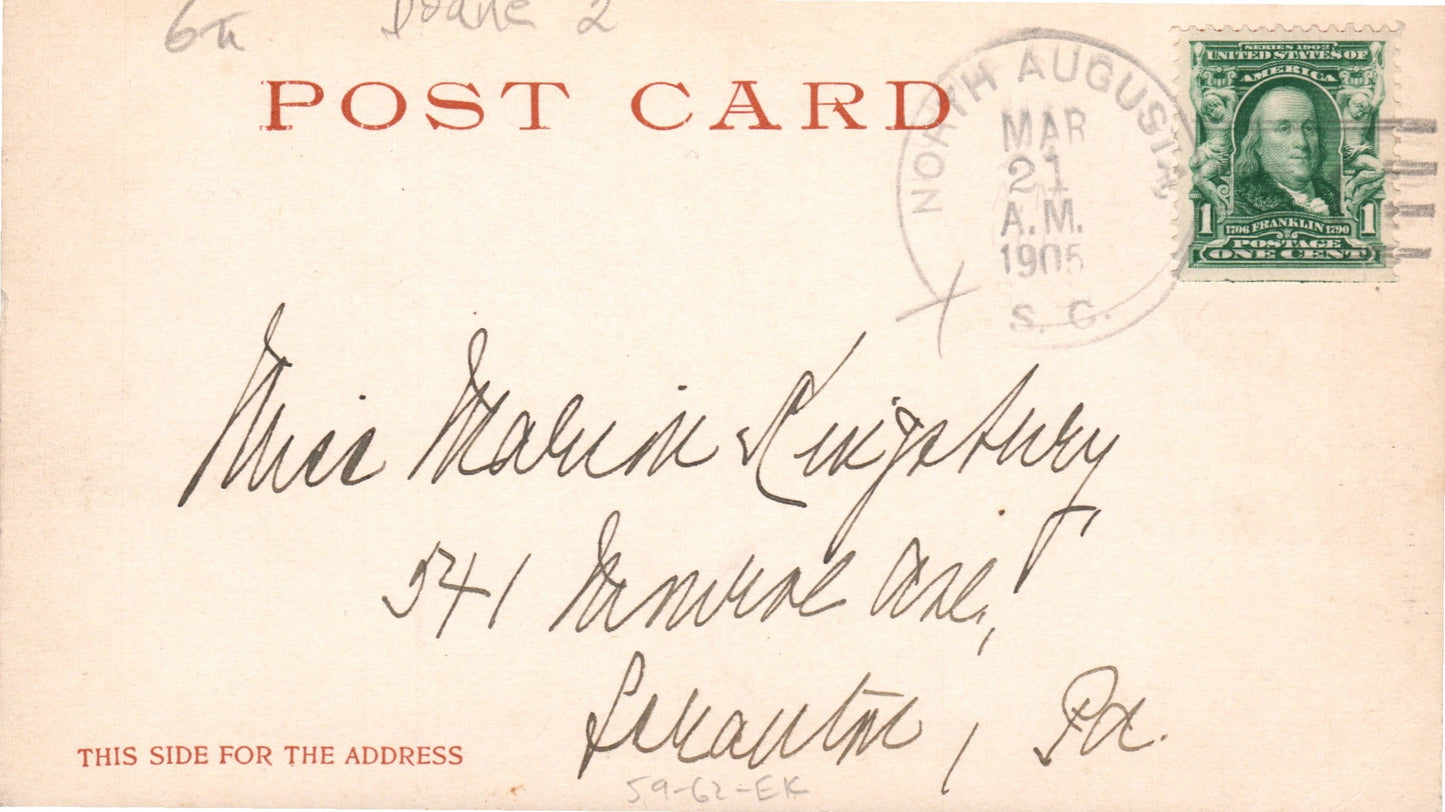 Doane 2
POST CARD
NORTH AUGUSTA,
MAR
21
A.M.
1905
S. C.
SERIES 1902
UNITED STATES OF
AMERICA
1 1706 FRANKLIN 1790 1
POSTAGE
ONE CENT
Miss Marion Kingsbury
541 Monroe Ave.,
Scranton, Pa.
THIS SIDE FOR THE ADDRESS
59-62-EK